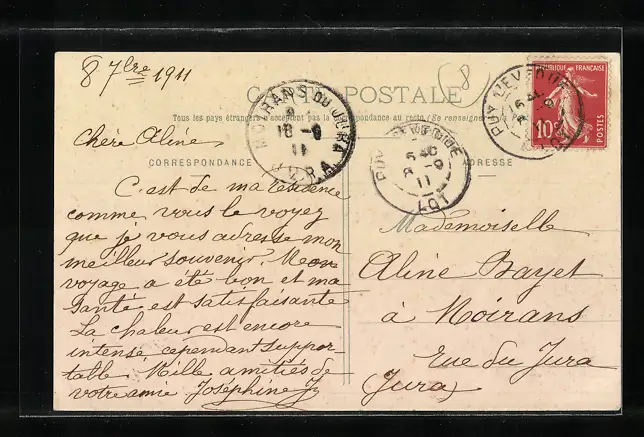 8 7bre 1911
CARTE POSTALE
Tous les pays étrangers n'acceptent pas la correspondance au recto (Se renseigner
CORRESPONDANCE
ADRESSE
Chère Aline,
C'est de ma résidence
comme vous le voyez
que je vous adresse mon
meilleur souvenir. Mon
voyage a été bon et ma
santé est satisfaisante
La chaleur est encore
intense, cependant suppor-
table. Mille amitiés de
votre amie Joséphine
Mademoiselle
Aline Bayet
à Moirans
rue du Jura
(Jura)
MOIRANS DU JURA
10-9
11
JURA
PUY L'EVEQUE
8-9
11
LOT
PUY L'EVEQUE
LOT
RÉPUBLIQUE FRANÇAISE
10c
POSTES
8